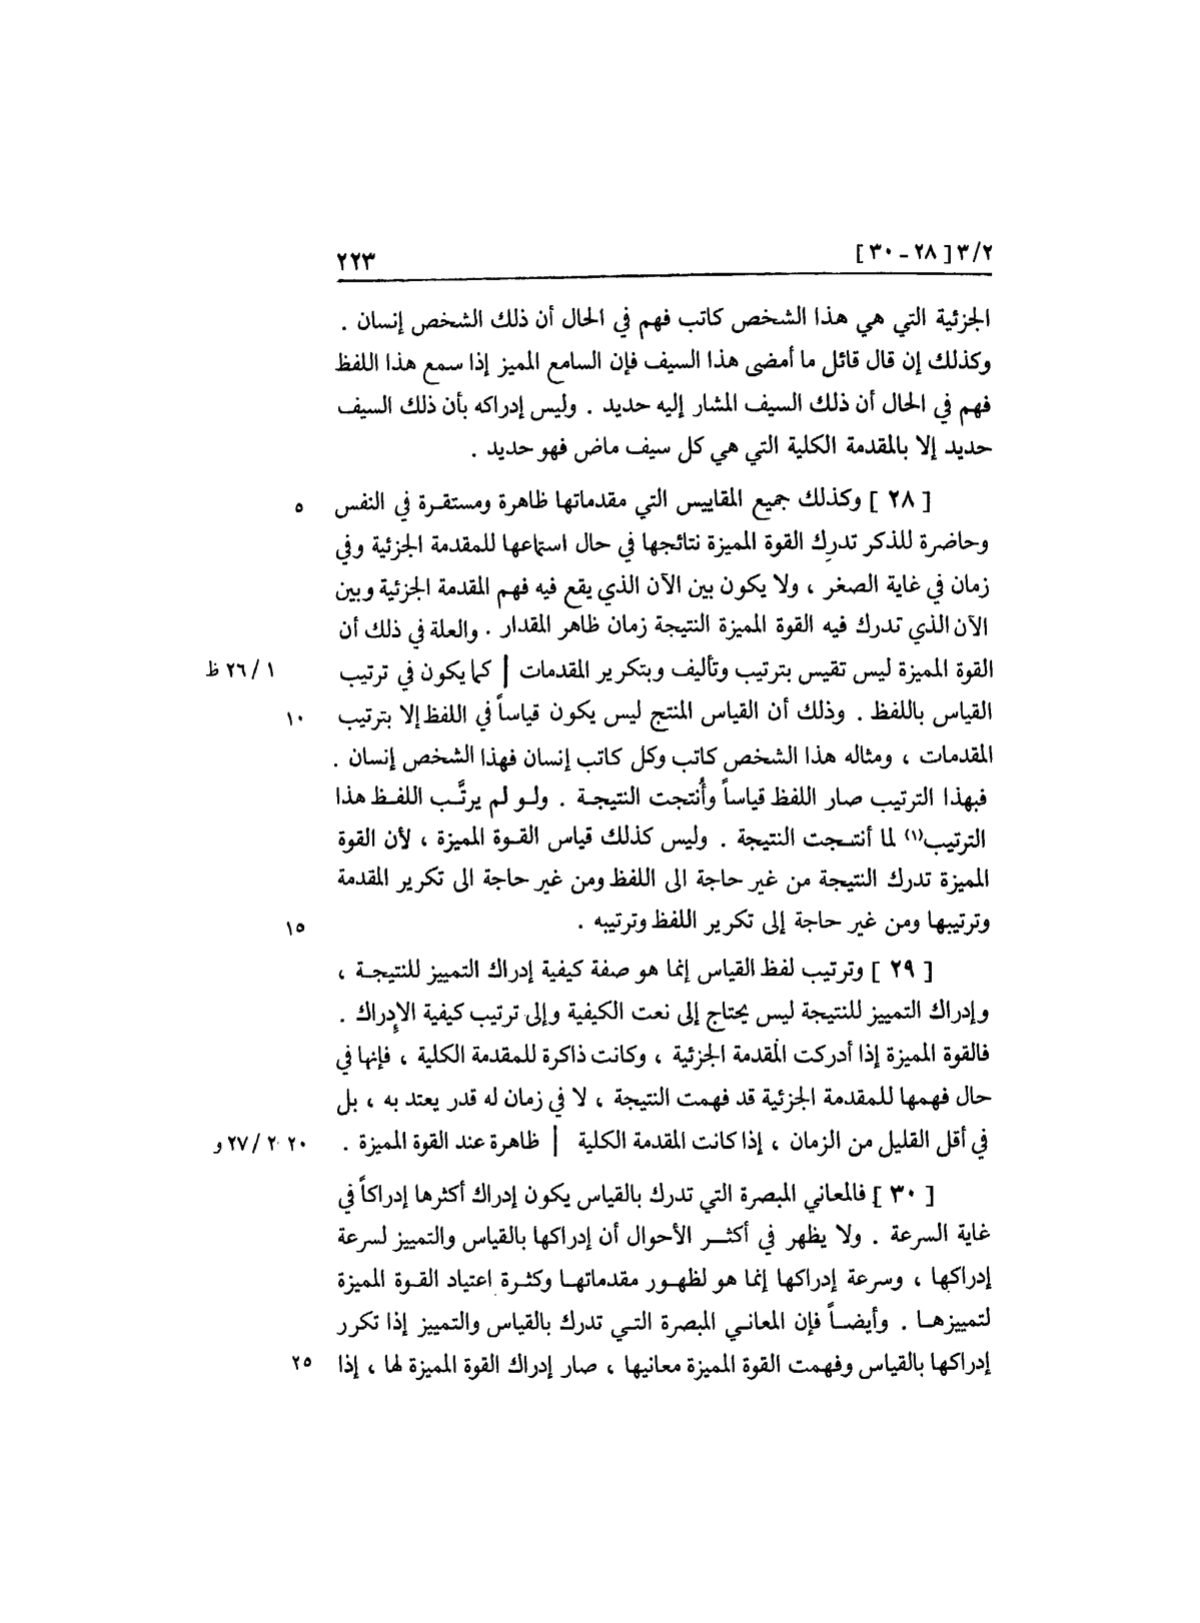 ٣/٢ [ ٢٨ - ٣٠ ] ٢٢٣
الجزئية التي هي هذا الشخص كاتب فهم في الحال أن ذلك الشخص إنسان .
وكذلك إن قال قائل ما أمضى هذا السيف فإن السامع المميز إذا سمع هذا اللفظ
فهم في الحال أن ذلك السيف المشار إليه حديد . وليس إدراكه بأن ذلك السيف
حديد إلا بالمقدمة الكلية التي هي كل سيف ماض فهو حديد .
[ ٢٨ ] وكذلك جميع المقاييس التي مقدماتها ظاهرة ومستقرة في النفس ٥
وحاضرة للذكر تدرِك القوة المميزة نتائجها في حال استماعها للمقدمة الجزئية وفي
زمان في غاية الصغر ، ولا يكون بين الآن الذي يقع فيه فهم المقدمة الجزئية وبين
الآن الذي تدرك فيه القوة المميزة النتيجة زمان ظاهر المقدار . والعلة في ذلك أن
القوة المميزة ليس تقيس بترتيب وتأليف وبتكرير المقدمات | كما يكون في ترتيب ١ / ٢٦ ظ
القياس باللفظ . وذلك أن القياس المنتج ليس يكون قياساً في اللفظ إلا بترتيب ١٠
المقدمات ، ومثاله هذا الشخص كاتب وكل كاتب إنسان فهذا الشخص إنسان .
فبهذا الترتيب صار اللفظ قياساً وأُنتجت النتيجة . ولو لم يرتَّب اللفظ هذا
الترتيب(١) لما أنتجت النتيجة . وليس كذلك قياس القوة المميزة ، لأن القوة
المميزة تدرك النتيجة من غير حاجة الى اللفظ ومن غير حاجة الى تكرير المقدمة
وترتيبها ومن غير حاجة إلى تكرير اللفظ وترتيبه . ١٥
[ ٢٩ ] وترتيب لفظ القياس إنما هو صفة كيفية إدراك التمييز للنتيجة ،
وإدراك التمييز للنتيجة ليس يحتاج إلى نعت الكيفية وإلى ترتيب كيفية الإدراك .
فالقوة المميزة إذا أدركت المقدمة الجزئية ، وكانت ذاكرة للمقدمة الكلية ، فإنها في
حال فهمها للمقدمة الجزئية قد فهمت النتيجة ، لا في زمان له قدر يعتد به ، بل
في أقل القليل من الزمان ، إذا كانت المقدمة الكلية | ظاهرة عند القوة المميزة . ٢٠ ٢ / ٢٧ و
[ ٣٠ ] فالمعاني المبصرة التي تدرك بالقياس يكون إدراك أكثرها إدراكاً في
غاية السرعة . ولا يظهر في أكثر الأحوال أن إدراكها بالقياس والتمييز لسرعة
إدراكها ، وسرعة إدراكها إنما هو لظهور مقدماتها وكثرة اعتياد القوة المميزة
لتمييزها . وأيضاً فإن المعاني المبصرة التي تدرك بالقياس والتمييز إذا تكرر
إدراكها بالقياس وفهمت القوة المميزة معانيها ، صار إدراك القوة المميزة لها ، إذا ٢٥